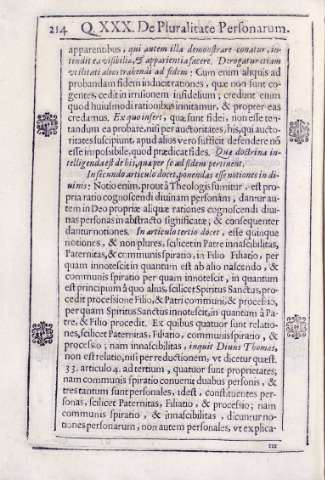 214 Q. XXX. De Pluralitate Personarum.
apparentibus; qui autem illa demonstrare conatur, in-
tendit ea visibilia, & apparentia facere. Derogatur etiam
vtilitati alios trahendi ad fidem: Cum enim aliquis ad
probandam fidem inducit rationes, quæ non sunt co-
gentes, cedit in irrisionem infidelium; credunt enim
quod huiusmodi rationibus innitamur, & propter eas
credamus. Ex quo infert, quæ sunt fidei, non esse ten-
tandum ea probare, nisi per auctoritates, his, qui aucto-
ritates suscipiunt; apud alios vero sufficit defendere nō
esse impossibile, quod prædicat fides. Quæ doctrina in-
telligenda est de his, quæ per se ad fidem pertinent.
In secundo articulo docet, ponendas esse notiones in di-
uinis: Notio enim, prout à Theologis sumitur, est pro-
pria ratio cognoscendi diuinam personam, dantur au-
tem in Deo propriæ aliquæ rationes cognoscendi diui-
nas personas in abstracto significatæ; & consequenter
dantur notiones. In articulo tertio docet, esse quinque
notiones, & non plures, scilicet in Patre innascibilitas,
Paternitas, & communis spiratio, in Filio Filiatio, per
quam innotescit in quantum est ab alio nascendo, &
communis spiratio per quam innotescit, in quantum
est principium à quo alius, scilicet Spiritus Sanctus, pro-
cedit processione Filio, & Patri communi, & processio,
per quam Spiritus Sanctus innotescit, in quantum à Pa-
tre, & Filio procedit. Ex quibus quatuor sunt relatio-
nes, scilicet Paternitas, Filiatio, communis spiratio, &
processio; nam innascibilitas, inquit Diuus Thomas,
non est relatio, nisi per reductionem, vt dicetur quæst.
33. articulo 4. ad tertium, quatuor sunt proprietates;
nam communis spiratio conuenit duabus personis, &
tres tantum sunt personales, idest, constituentes per-
sonas, scilicet Paternitas, Filiatio, & processio; nam
communis spiratio, & innascibilitas, dicuntur no-
tiones personarum, non autem personales, vt explica-